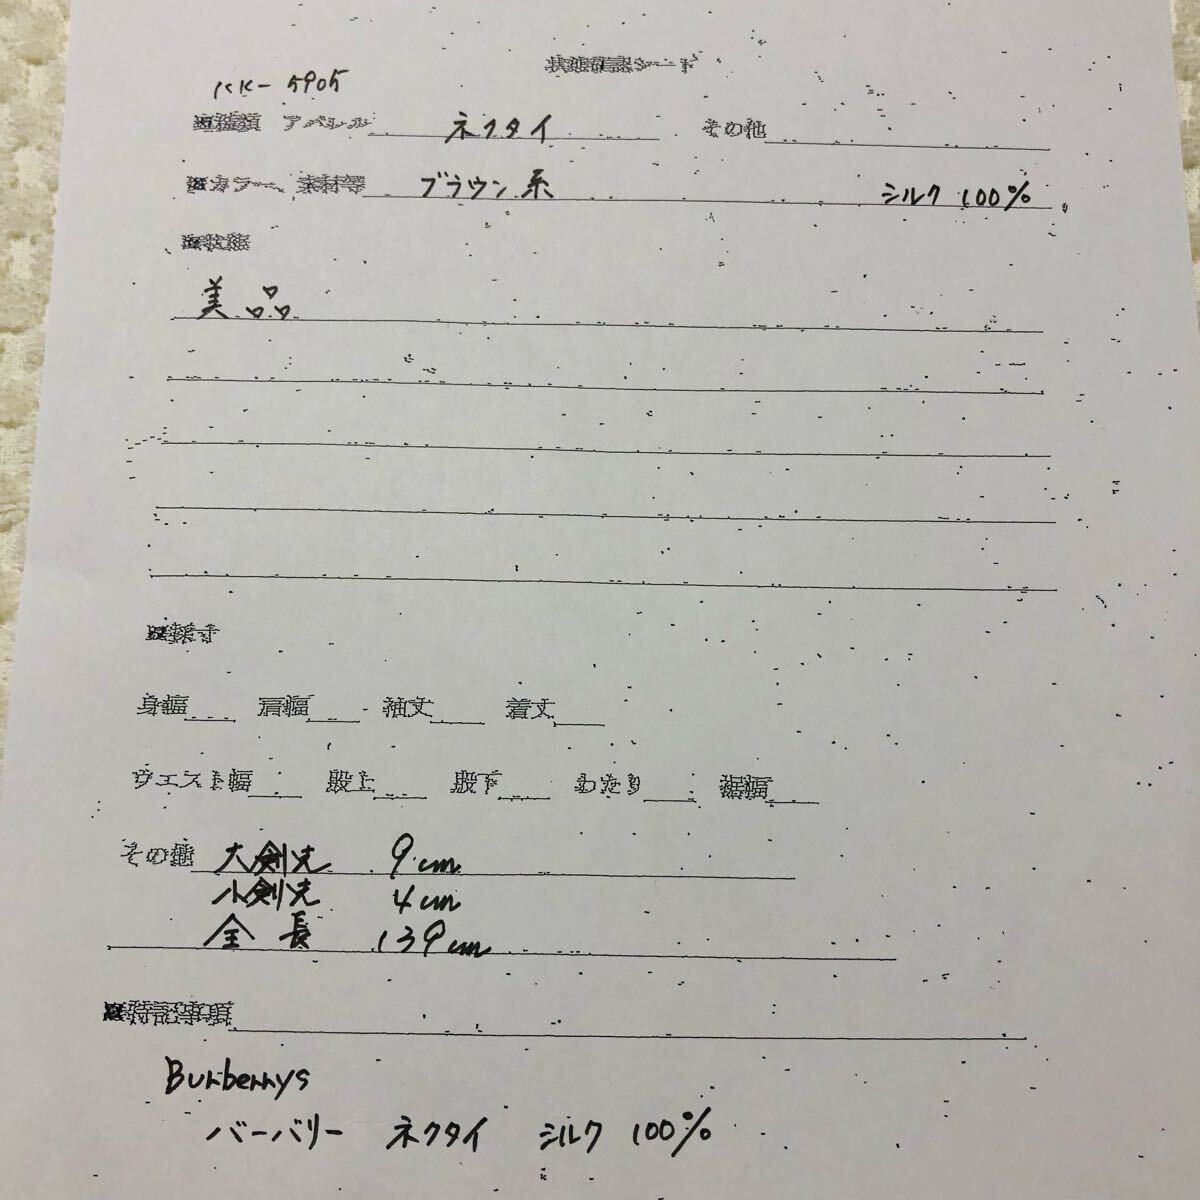 状態確認シート
KK-5905
■種類 アパレル ネクタイ その他
■カラー、素材等 ブラウン系 シルク 100%
■状態
美品
■採寸
身幅 肩幅 袖丈 着丈
ウエスト幅 股上 股下 わたり 裾幅
その他 大剣先 9cm
小剣先 4cm
全長 139cm
■特記事項
Burberrys
バーバリー ネクタイ シルク 100%